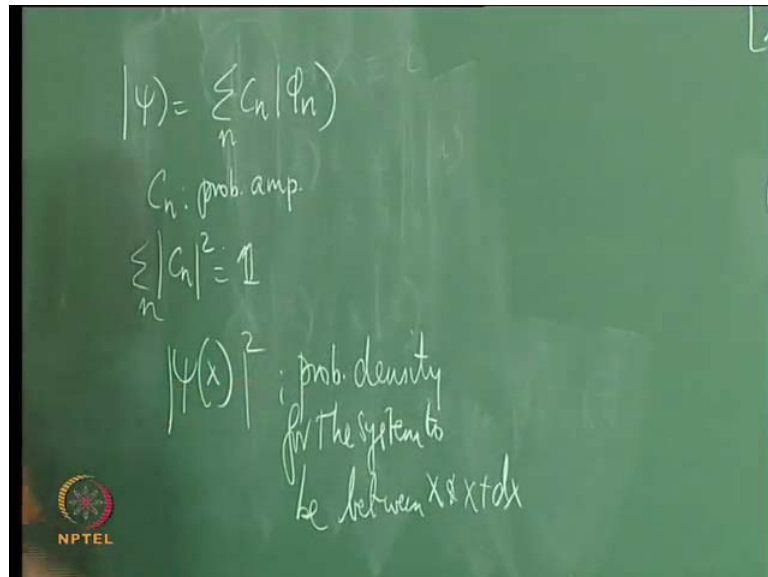 |ψ) = Σ Cn|φn)
n
Cn: prob. amp.
Σ|Cn|² = 1
n
|ψ(x)|² ; prob. density
for the system to
be between x & x+dx
NPTEL